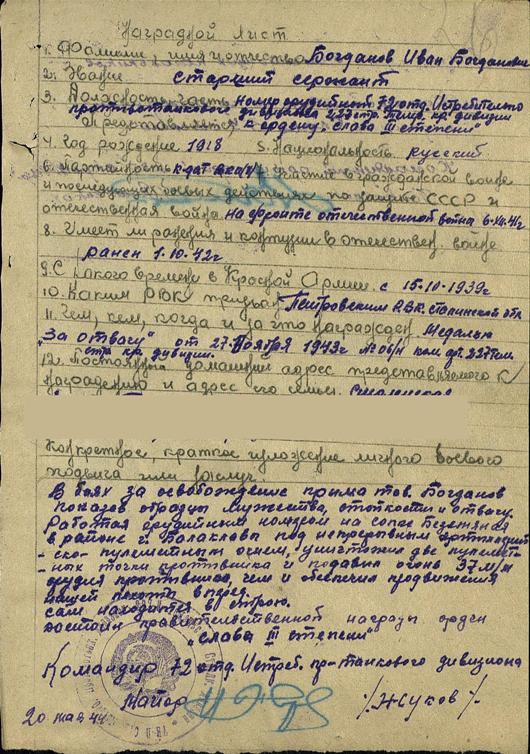 Наградной лист
1. Фамилия, имя и отчество Богданов Иван Богданович
2. Звание старший сержант
3. Должность, часть номер орудийный 72 отд. Истребительно
противотанкового дивизиона 227 стр. Темр. кр. дивизии
Представляется к ордену "Слава III степени"
4. Год рождение 1918 5. Национальность русский
6. Партийность к-дат ВКП(б) 7. участие в гражданской войне
и последующих боевых действиях по защите СССР и
отечественная война на фронте отечественной война 6-XII-41г
8. Имеет ли ранения и контузии в отечествен. войне
ранен 1.10.42г
9. С какого времени в Красной Армии с 15-10-1939г
10. Каким РВК призван Петровским РВК Сталинской обл
11. Чем, кем, когда и за что награжден Медалью
"За отвагу" от 27 Ноября 1943г № 06/н ком дт. 227 тем.
стр кр. дивизии.
12. Постоянный домашний адрес представляемого к
награждению и адрес его семьи.
Конкретное, краткое изложение личного боевого
подвига или заслуг.
В боях за освобождение Крыма тов. Богданов
показав образцы мужества, стойкости и отвагу.
Работая орудийным номером на сопке Безымяная
в районе г. Балаклавы под непрерывным артиллерий
-ско-пулеметным огнем, уничтожил две пулемет-
-ных точки противника и подавил огонь 37 м/м
орудия противника, чем и обеспечил продвижения
нашей пехоты вперед.
Сам находится в строю.
Достоин правительственной награды орден
"Слава III степени"
Командир 72 отд. Истреб. пр-танкового дивизиона
Майор /Жуков/.
20 мая 44